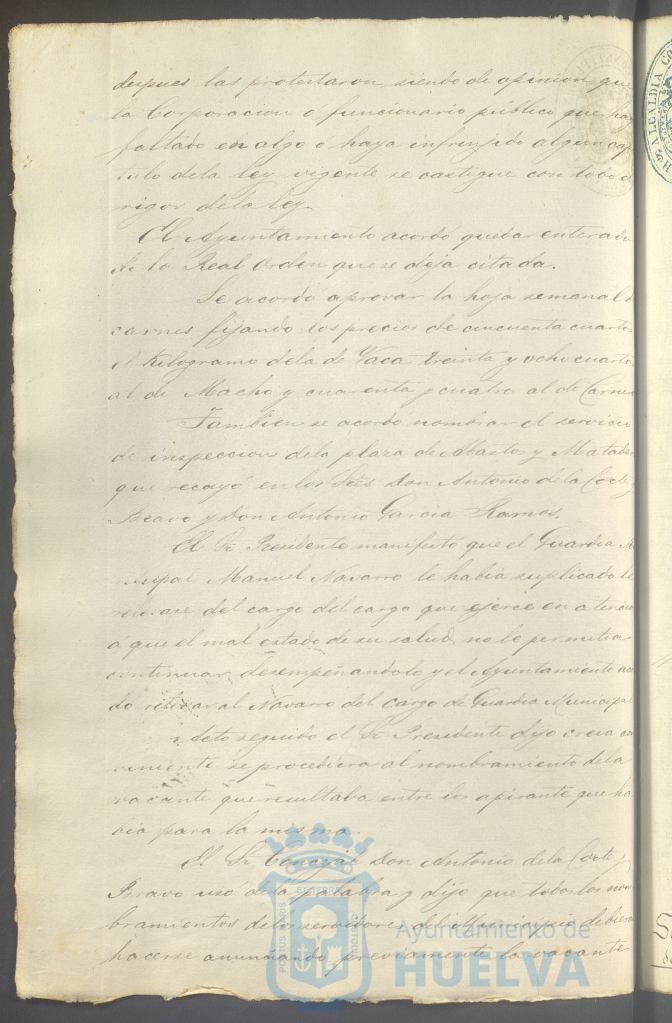 despues las protestaron siendo de opinion que
la Corporacion ó funcionario público que ha
faltado en algo ó haya infrinjido algun cap
tulo de la ley vigente se castigue con todo el
rigor de la ley.
El Ayuntamiento acordó quedar enterado
de la Real Orden que se deja citada.
Se acordó aprovar la hoja semanal de
carnes fijando los precios de cincuenta cuartos
el Kilogramo de la de Vaca treinta y ocho cuartos
al de Macho y cuarenta y cuatro al de Carnero
Tambien se acordó nombrar el servicio
de inspeccion de la plaza de Abastos y Matadero
que recayó en los Sres Don Antonio de la Corte y
Bravo y Don Antonio Garcia Ramos.
El Sr Presidente manifestó que el Guardia Mu
nicipal Manuel Navarro le habia suplicado le
relevase del cargo del cargo que ejerce en atencion
á que el mal estado de su salud no le permitia
continuar desempeñandolo y el Ayuntamiento acor
dó relevar al Navarro del cargo de Guardia Municipal
Acto seguido el Sr Presidente dijo creia con
veniente se procediera al nombramiento de la
vacante que resultaba entre los apirante que ha
via para la misma.
El Sr Concejal Don Antonio de la Corte y
Bravo usó de la palabra y dijo que todos los nom
bramientos de los servidores del Municipio debieran
hacerse anunciando previamente la vacante
Ayuntamiento de
HUELVA
ALCALDIA CO